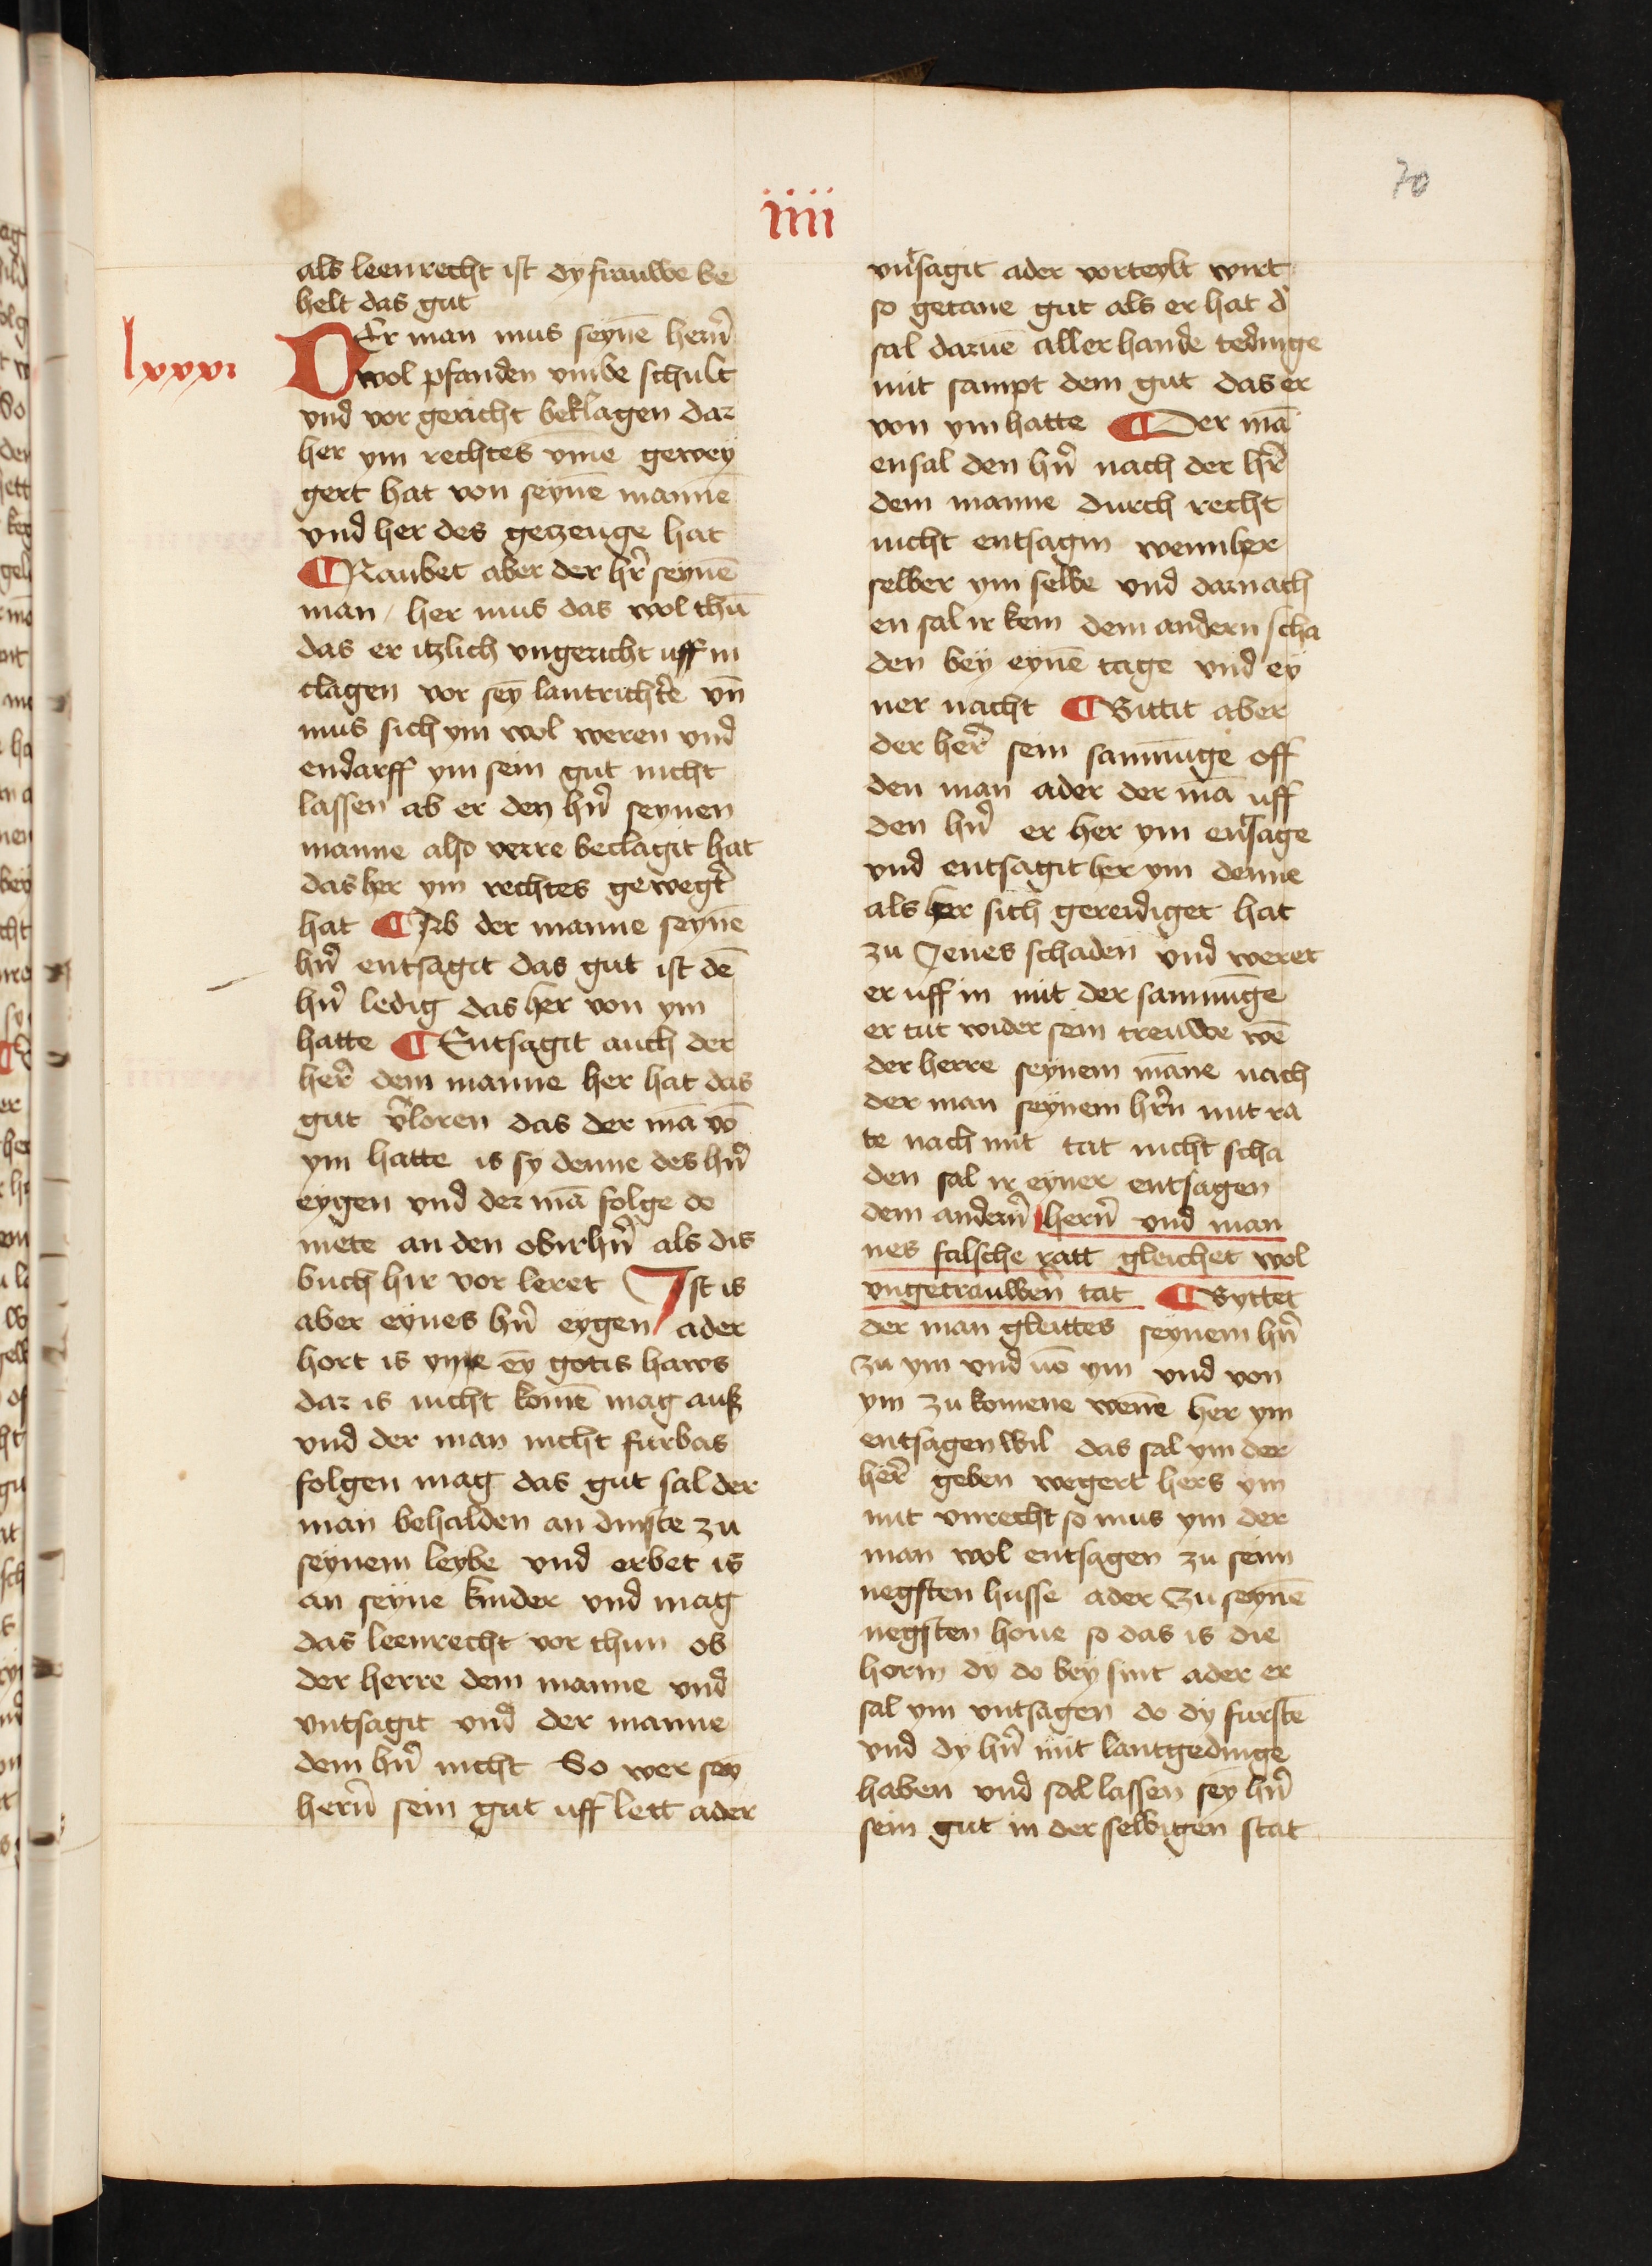 70
iiii
als leenrecht ist dy frauwe be
helt das gut
lxxxi
DEr man mus seynē hern̄
wol pfanden vmbe schult
vnd vor gericht beklagen dar
her ym rechtes vm̄e gewey
gert hat von seynē mannē
vnd her des getzeuge hat
¶ Raubet aber der hr̄ seynē
man / her mus das wol thū
das er itzlich vngericht uff in
clagen vor sey̅ lantrichter̄ vn̄
mus sich ym wol weren vnd
endarff ym sein gut nicht
lassen ab er den hn̄ seynen
manne also verre beclagit hat
das her ym rechtes gewegt̄
hat ¶ Ab der manne seynē
hn̄ entsagit das gut ist dē
hn̄ ledig das her von ym
hatte ¶ Entsagit auch der
her̄ dem manne her hat das
gut v̄loren das der mā vō
ym hatte is sy denne des hn̄
eygen vnd der mā folge do
mete an den obirhn̄ als dis
buch hir vor leret Ist is
aber eynes hn̄ eygen ader
hort is yn ey̅ gotis haws
dar is nicht komē mag auß
vnd der man nicht furbas
folgen mag das gut sal der
man behalden an dinste zu
seynem leybe vnd erbet is
an seyne kinder vnd mag
das leenrecht vor thun ob
der herre dem manne vnd
vntsagit vnd der manne
dem hn̄ nicht So wer sey̅
hern̄ sein gut uff lett ader
vn̄sagit ader vorteylt wirt
so getane gut als er hat d'
sal daruē aller hande tedinge
mit sampt dem gut das er
von ym hatte ¶ Der mā
ensal den hn̄ nach der hr̄
dem manne durch recht
nicht entsagin wenn her
selber ym selbe vnd darnach
en sal ir kein dem andern scha
den bey eynē tage vnd ey
ner nacht ¶ Bittit aber
der her̄ sein samnūge off
den man ader der mā uff
den hn̄ er her ym entsage
vnd entsagit her ym denne
als her sich gereidiget hat
zu Jenes schaden vnd weret
er uff in mit der samnūge
er tut wider sein treuwe wē
der herre seynem māne nach
der man seynem hr̄n mit ra
te nach mit tat nicht scha
den sal ir eyner entsagen
dem andern̄ hern̄ vnd man
nes falsche ratt gleichet wol
vngetrauwen tat ¶ Byttet
der man gleittes seynem hn̄
zu ym vnd uō ym vnd von
ym zu komene wenne her ym
entsagen wil das sal ym der
her̄ geben wegert hers ym
mit vnrecht so mus ym der
man wol entsagen zu seim
negsten husse ader zu seynē
negsten houe so das is die
horin dy do bey sint ader er
sal ym vntsagen do dy furstē
vnd dy hn̄ mit lantgedinge
haben vnd sal lassen sey̅ hn̄
sein gut in der selbigen stat